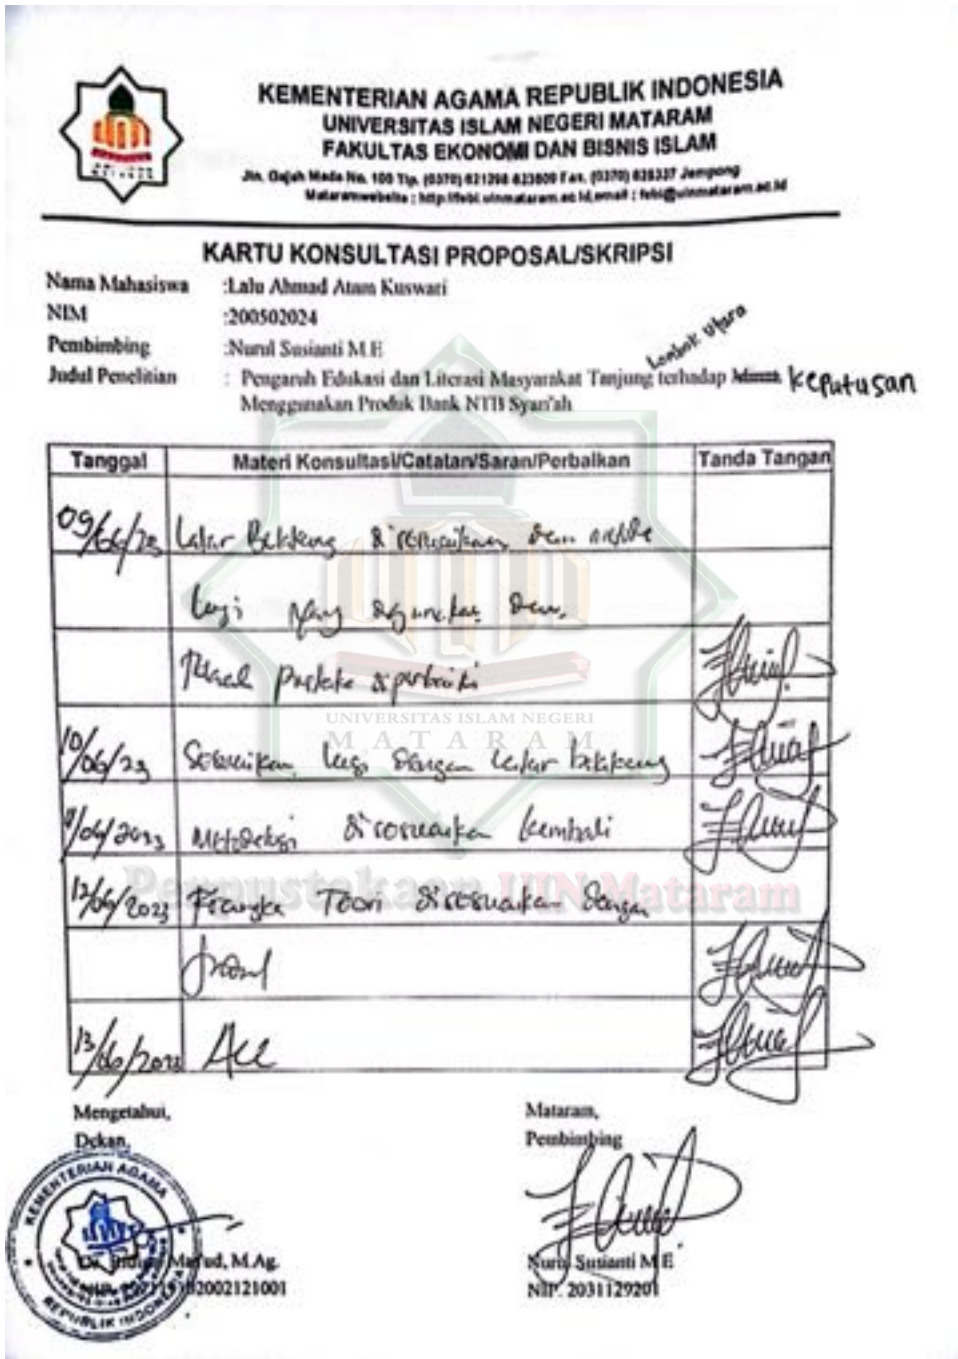 KEMENTERIAN AGAMA REPUBLIK INDONESIA
UNIVERSITAS ISLAM NEGERI MATARAM
FAKULTAS EKONOMI DAN BISNIS ISLAM
Jln. Gajah Mada No. 100 Tlp. (0370) 621298 623809 Fax. (0370) 625337 Jempong
Mataramwebsite : http://febi.uinmataram.ac.id,email : febi@uinmataram.ac.id
KARTU KONSULTASI PROPOSAL/SKRIPSI
Nama Mahasiswa :Lalu Ahmad Atam Kuswari
NIM :200502024
Pembimbing :Nurul Susianti M.E
Lombok Utara
Judul Penelitian : Pengaruh Edukasi dan Literasi Masyarakat Tanjung terhadap keputusan
Menggunakan Produk Bank NTB Syari'ah
Tanggal Materi Konsultasi/Catatan/Saran/Perbaikan Tanda Tangan
09/06/23 Latar Belakang disesuaikan
lagi yang digunakan
diperbaiki
10/06/23 Sesuaikan lagi dengan Latar belakang
/06/2023 Metodologi disesuaikan kembali
12/06/2023 Kerangka Teori disesuaikan dengan
Judul
13/06/2023 Acc
UNIVERSITAS ISLAM NEGERI
MATARAM
Perpustakaan UIN Mataram
Mengetahui,
Dekan,
Mataram,
Pembimbing
KEMENTERIAN AGAMA
REPUBLIK INDONESIA
Mas'ud, M.Ag.
2002121001
Nurul Susianti M.E
NIP. 2031129201